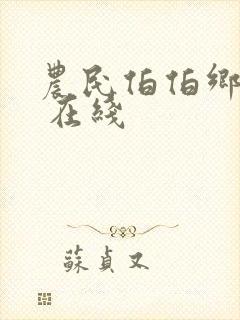 農民伯伯鄉
在綫
蘇貞又